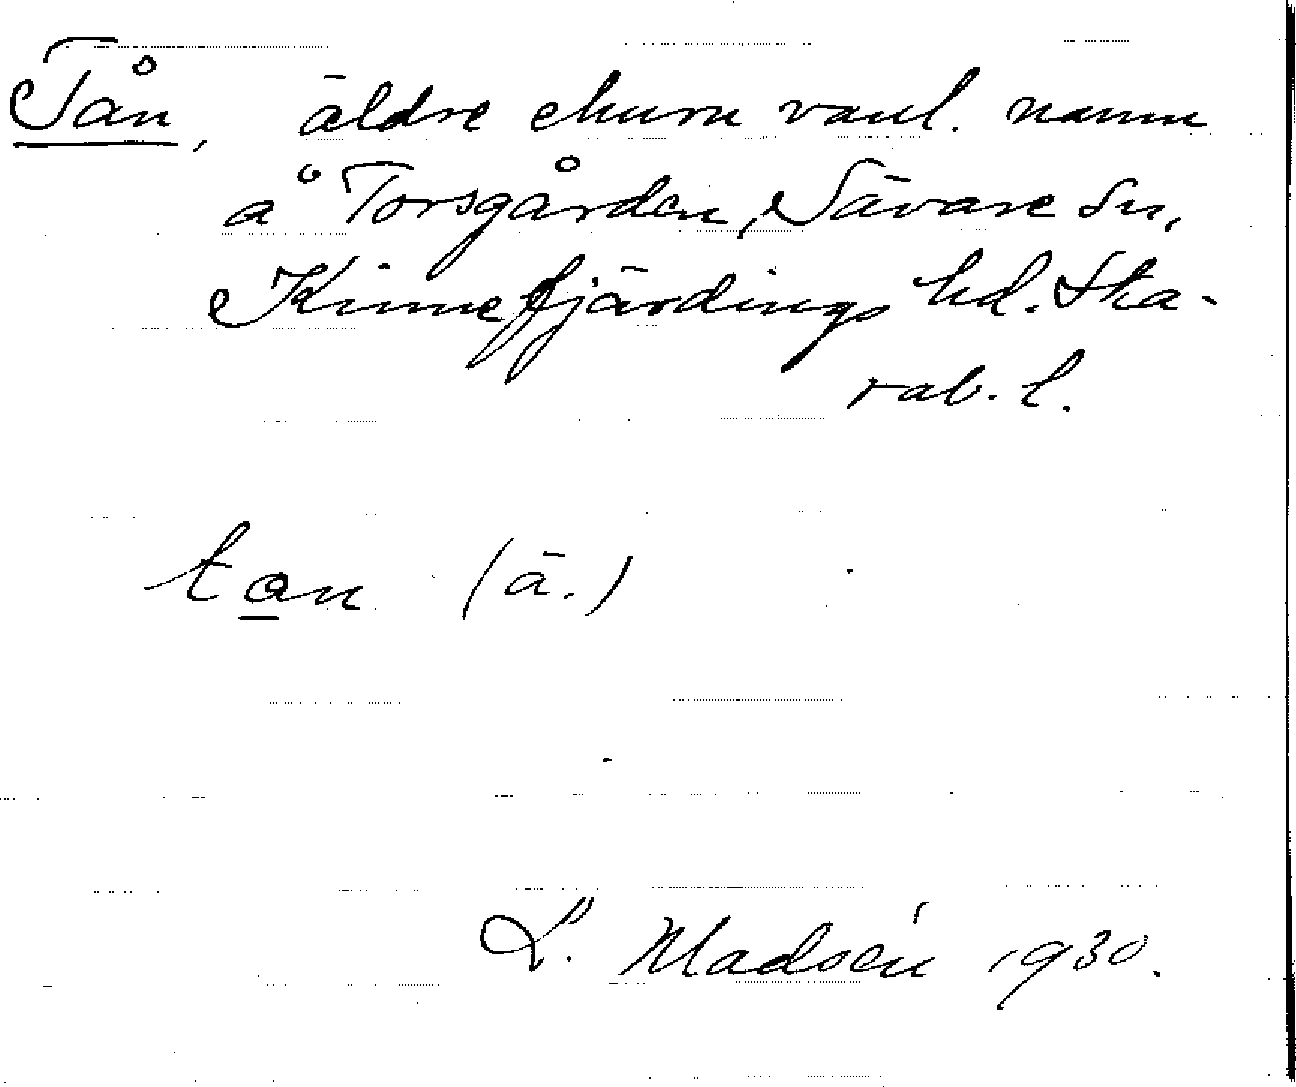 Tån, äldre ehuru vanl. namn
å Torsgården, Sävare sn,
Kinnefjärdings hd. Ska-
rab. l.
tan (ä.)
L. Madsén 1930.